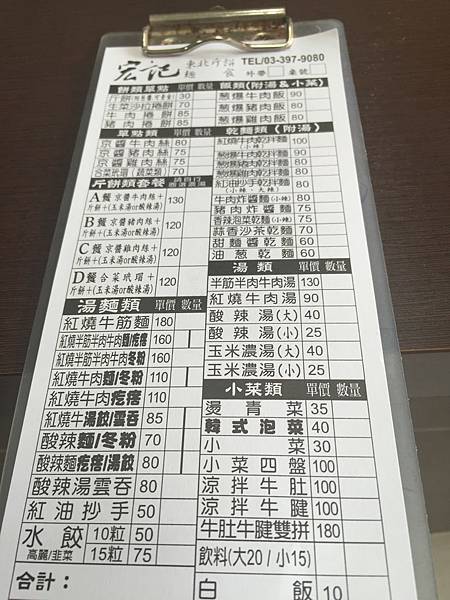 宏記 東北斤餅 麵食 TEL/03-397-9080
外帶 桌號
餅類單點 單價 數量
斤餅 30
生菜沙拉捲餅 70
牛肉捲餅 85
豬肉捲餅 85
單點類 單價 數量
京醬牛肉絲 80
京醬豬肉絲 75
京醬雞肉絲 75
合菜玳瑁(蔬菜類) 70
斤餅類套餐
A餐 京醬牛肉絲+ 斤餅+(玉米湯or酸辣湯) 130
B餐 京醬豬肉絲+ 斤餅+(玉米湯or酸辣湯) 120
C餐 京醬雞肉絲+ 斤餅+(玉米湯or酸辣湯) 120
D餐 合菜玳瑁+ 斤餅+(玉米湯or酸辣湯) 120
湯麵類 單價 數量
紅燒牛筋麵 180
紅燒半筋半肉牛肉麵/疙瘩 160
紅燒半筋半肉牛肉冬粉 160
紅燒牛肉麵/冬粉 110
紅燒牛肉疙瘩 110
紅燒牛湯餃/雲吞 85
酸辣麵/冬粉 70
酸辣麵疙瘩/湯餃 80
酸辣湯雲吞 80
紅油抄手 50
水餃 高麗/韭菜 10粒 50
15粒 75
合計：
飯類(附湯&小菜)
蔥爆牛肉飯 90
蔥爆豬肉飯 80
蔥爆雞肉飯 80
乾麵類(附湯)
紅燒牛肉乾拌麵(小辣) 100
蔥爆牛肉乾拌麵 90
蔥爆豬肉乾拌麵 80
蔥爆雞肉乾拌麵 80
紅油抄手乾拌麵(小辣、大辣) 80
牛肉炸醬麵(小辣) 80
豬肉炸醬麵(小辣) 75
香辣泡菜乾麵(小辣) 70
蒜香沙茶乾麵 70
甜麵醬乾麵 60
油蔥乾麵 60
湯類 單價 數量
半筋半肉牛肉湯 130
紅燒牛肉湯 90
酸辣湯(大) 40
酸辣湯(小) 25
玉米濃湯(大) 40
玉米濃湯(小) 25
小菜類 單價 數量
燙青菜 35
韓式泡菜 40
小菜 30
小菜四盤 100
涼拌牛肚 100
涼拌牛腱 100
牛肚牛腱雙拼 180
飲料(大20/小15)
白飯 10